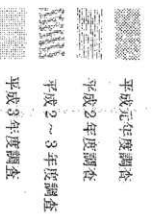 平成元年度調査
平成2年度調査
平成2～3年度調査
平成3年度調査